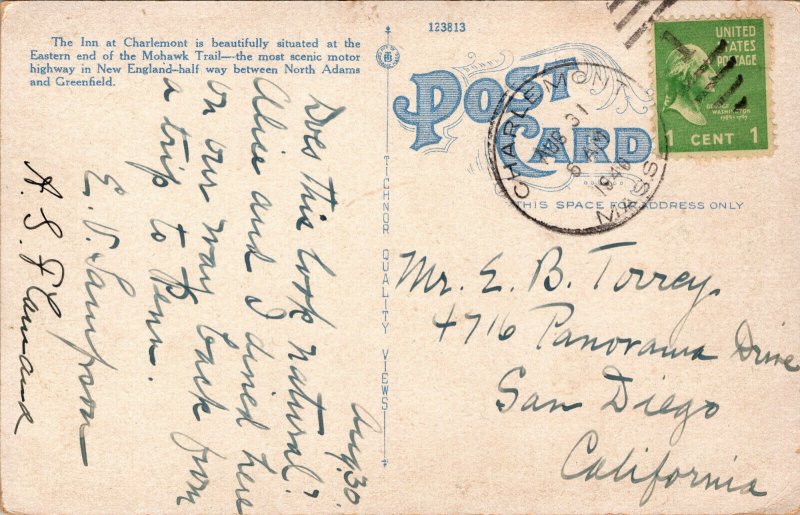 The Inn at Charlemont is beautifully situated at the
Eastern end of the Mohawk Trail—the most scenic motor
highway in New England—half way between North Adams
and Greenfield.
123813
POST
CARD
THIS SPACE FOR ADDRESS ONLY
TICHNOR QUALITY VIEWS
CHARLEMONT
AUG 31
6 AM
1940
MASS
UNITED
STATES
POSTAGE
GEORGE
WASHINGTON
1789-1797
1 CENT 1
Aug. 30.
Does this look natural?
Alice and I dined here
on our way back from
a trip to Penn.
E. V. Sampson
A. S.
Mr. E. B. Torrey
4716 Panorama Drive
San Diego
California